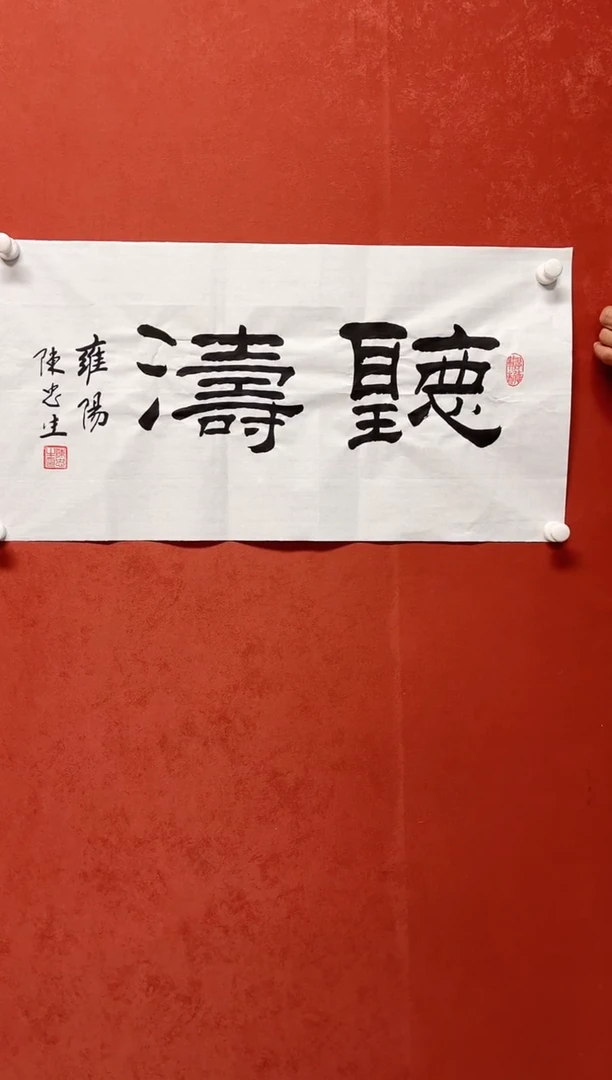 聽濤
雍陽
陳忠生